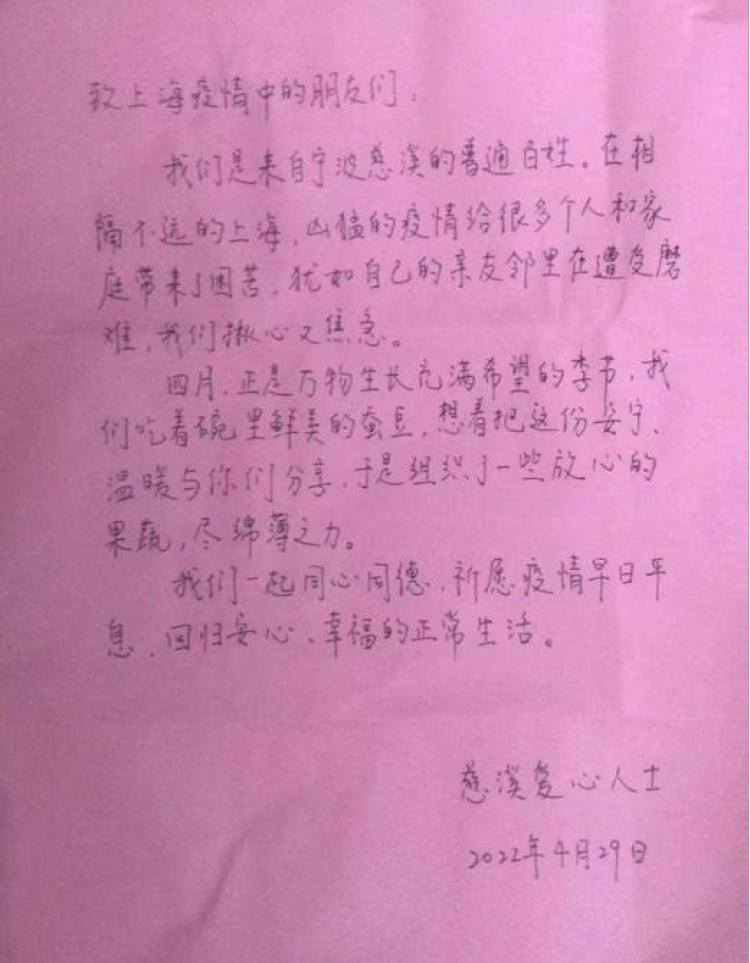 致上海疫情中的朋友们：
我们是来自宁波慈溪的普通百姓。在相
隔不远的上海，凶猛的疫情给很多个人和家
庭带来了困苦，犹如自己的亲友邻里在遭受磨
难，我们揪心又焦急。
四月，正是万物生长充满希望的季节，我
们吃着碗里鲜美的蚕豆，想着把这份安宁、
温暖与你们分享，于是组织了一些放心的
果蔬，尽绵薄之力。
我们一起同心同德，祈愿疫情早日平
息，回归安心、幸福的正常生活。
慈溪爱心人士
2022年4月29日